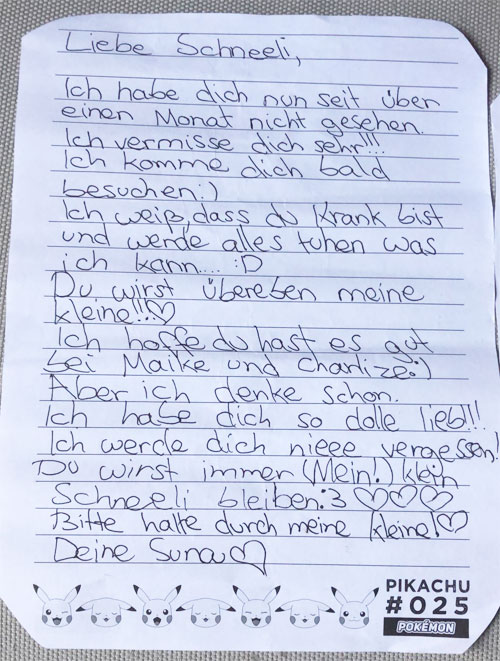 Liebe Schneeli,
Ich habe dich nun seit über
einen Monat nicht gesehen.
Ich vermisse dich sehr!!!
Ich komme dich bald
besuchen:)
Ich weiß, dass du Krank bist
und werde alles tuhen was
ich kann.... :D
Du wirst übereben meine
kleine!!!♡
Ich hoffe du hast es gut
bei Maike und Charlize:)
Aber ich denke schon.
Ich habe dich so dolle lieb!!!
Ich werde dich nieee vergessen!
Du wirst immer (Mein!) klein
Schneeli bleiben:3 ♡♡♡
Bitte halte durch meine kleine!♡
Deine Suna♡
PIKACHU
#025
POKÉMON